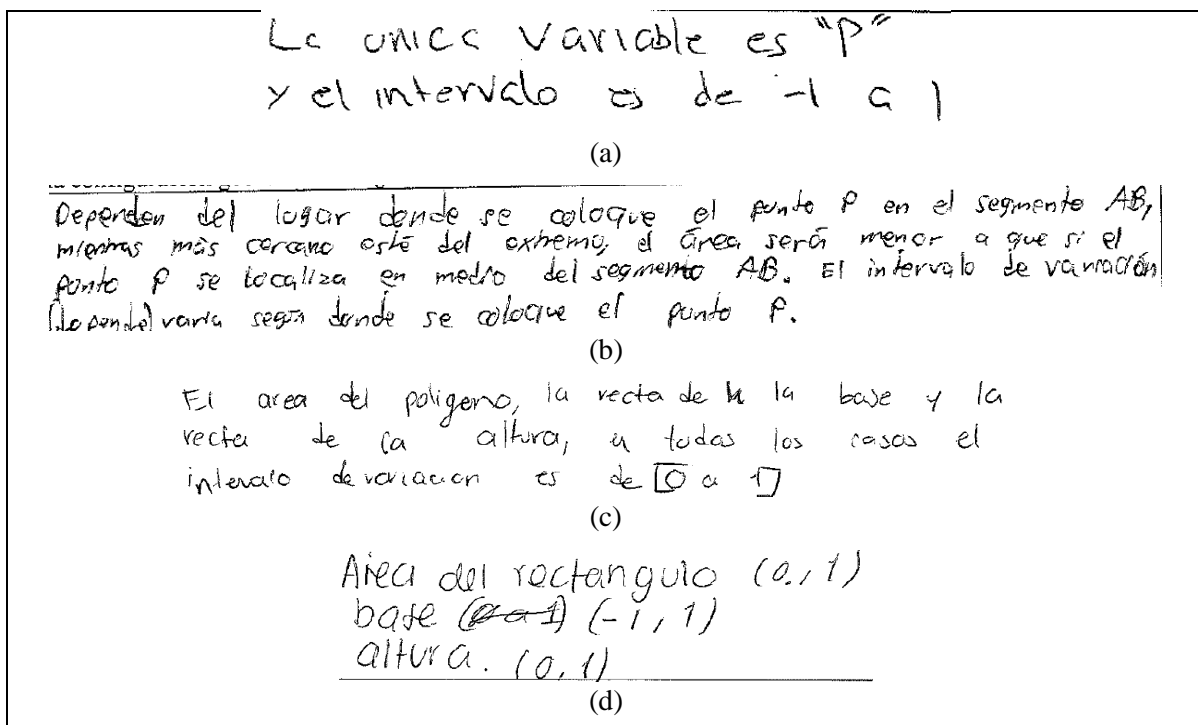 La unica variable es "P"
y el intervalo es de -1 a 1
(a)
Dependen del lugar donde se coloque el punto P en el segmento AB,
mientras más cercano esté del extremo, el área será menor a que si el
punto P se localiza en medio del segmento AB. El intervalo de variación
(depende) varia según donde se coloque el punto P.
(b)
El area del poligono, la recta de la base y la
recta de la altura, en todos los casos el
intervalo de variacion es de [0 a 1]
(c)
Area del rectangulo (0, 1)
base (-1, 1)
altura. (0, 1)
(d)